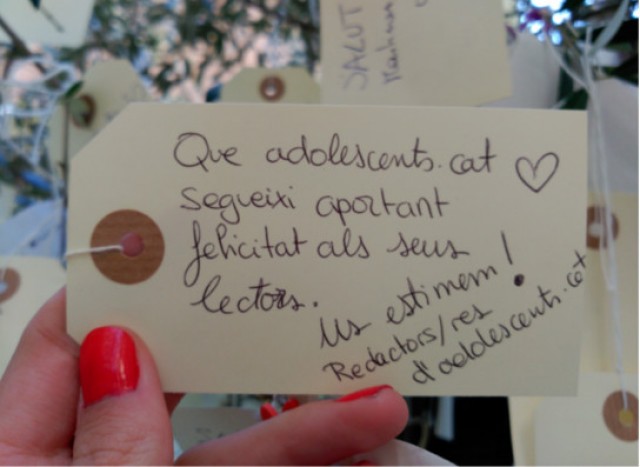 SALUT
Que adolescents.cat
segueixi aportant
felicitat als seus
lectors.
Us estimem!
Redactors/res
d'adolescents.cat